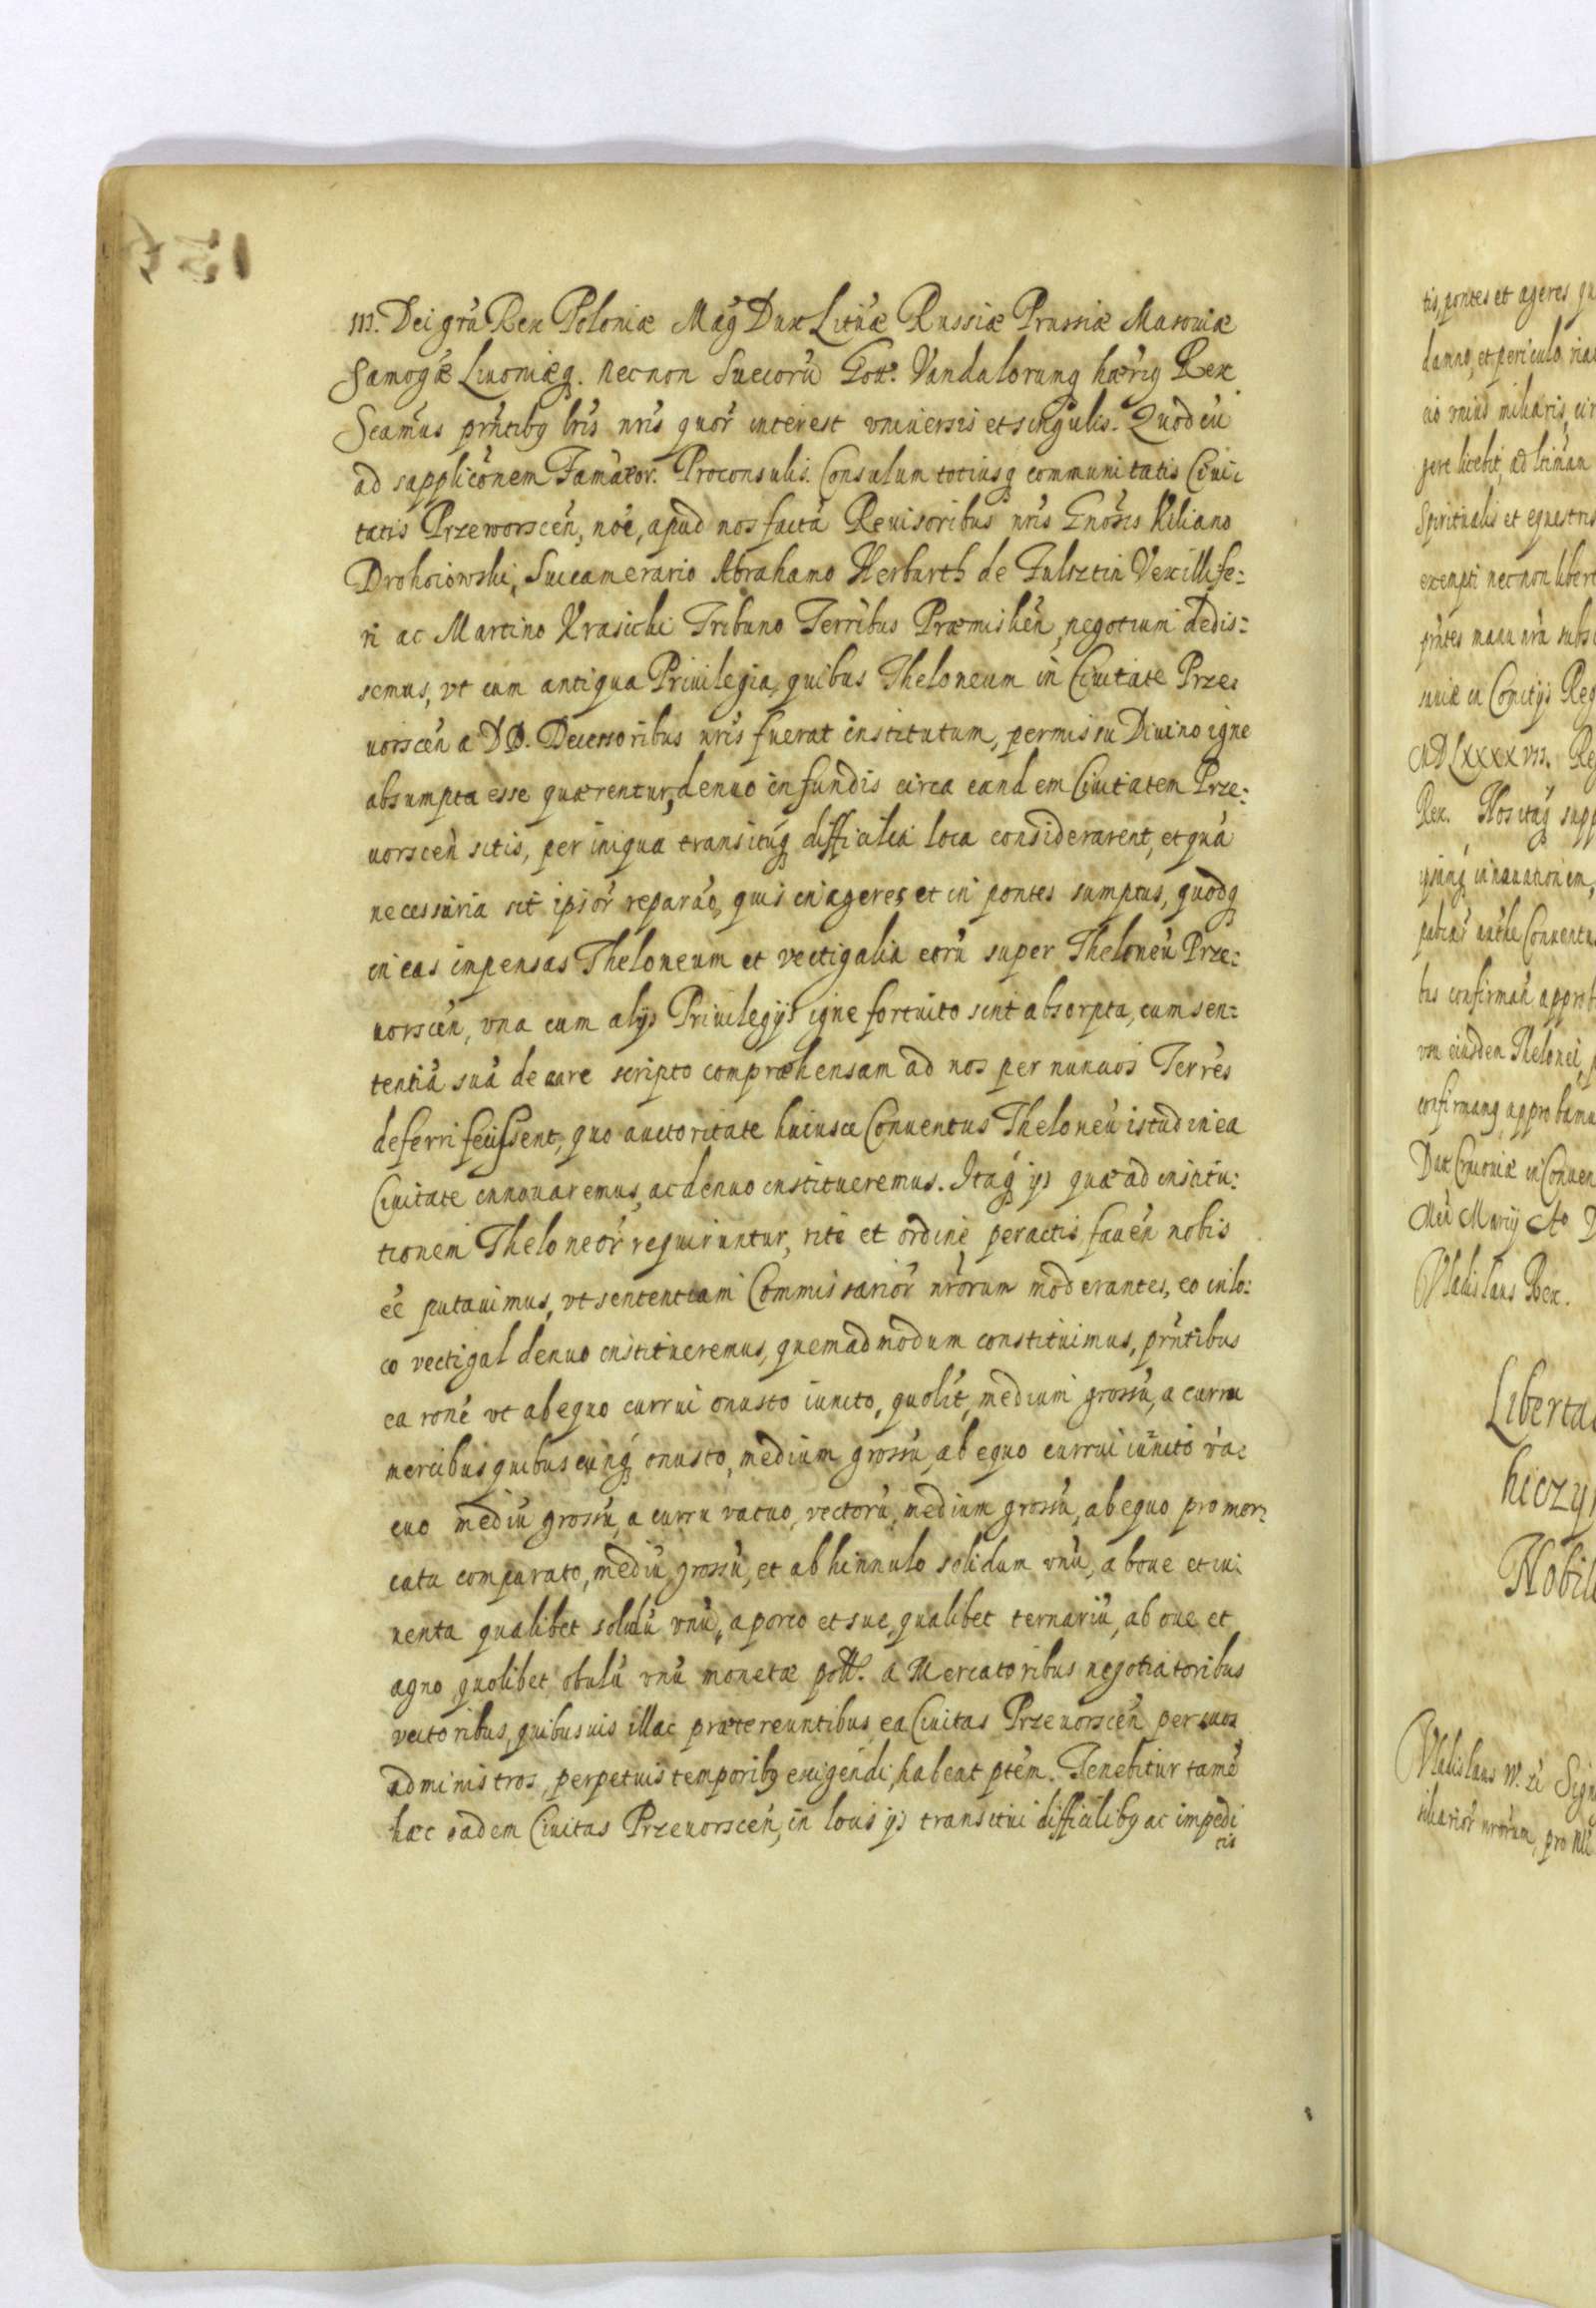 III. Dei gra͂ Rex Poloniæ Mag Dux Lituæ Russiæ Prussiæ Masouiæ
Samogæ Liuoniæq. necnon Suecoru͂ Gott. Vandalorumq hærig Rex
Scamus prn͂tibq lris nris quor͂ interest vniuersis et singulis. Quod cu͂
ad supplico͂nem Famator. Proconsulis. Consulum totiusq communitatis Ciui:
tatis Przeworscen͂, noe͂, apud nos facta͂ Reuisoribus nris Gnosis Kiliano
Drohoiowski, Succamerario Abrahamo Herburth de Fulsztin Vexillife:
ri ac Martino Krasicki Tribuno Terribus Præmislien͂, negotium dedis:
semus, vt cum antiqua Priuilegia, quibus Theloneum in Ciuitate Prze:
uorscen͂ a DD. Decessoribus nris fuerat institutum, permissu Diuino igne
absumpta esse quærentur, denuo in fundis circa eandem Ciuitatem Prze:
uorscen͂ sitis, per iniqua transituq difficilia loca considerarent, et qua͂
necessaria sit ipsor͂ repara͂o, quis in ageres et in pontes sumptus, quodq
in eas impensas Theloneum et vectigalia eoru͂ super Theloneu͂ Prze:
uorscen͂, vna cum alijs Priuilegijs igne fortuito sint absorpta, cum sen:
tentia͂ sua͂ de ea re scripto compræhensam ad nos per nuncios Terres
deferri fecissent, quo auctoritate huiusce Conuentus Theloneu͂ istud in ea
Ciuitate innouaremus, ac denuo institueremus. Itaq ijs quæ ad institu:
tionem Theloneor͂ requiruntur, rite et ordine peractis fauen͂ nobis
ee͂ putauimus, vt sententiam Commissarior͂ nr͂orum moderantes, eo in lo:
co vectigal denuo institueremus, quemadmodum constituimus, prn͂tibus
ea rone͂ vt ab equo currui onusto iuncto, quolit͂, medium grossu͂, a curru
mercibus quibuscunq onusto, medium grossu͂, ab equo currui iuncto va:
cuo mediu͂ grossu͂, a curru vacuo, vectoru͂, medium grossu͂, ab equo pro mer:
catu comparato, mediu͂ grossu͂, et ab hinnulo solidum vnu͂, a boue et iu:
uenta qualibet solidu͂ vnu͂, a porco et sue, qualibet ternariu͂, ab oue et
agno quolibet obulu͂ vnu͂ monetæ poll. a Mercatoribus negotiatoribus
vectoribus, quibusuis illac prætereuntibus, ea Ciuitas Przeuorscen͂ per suos
administros, perpetuis temporibq exigendi, habeat pte͂m. Tenebitur tame͂
hæc eadem Ciuitas Przeuorscen͂, in locis ijs transitui difficilibq ac impedi
tis
tis, pontes et ageres
damno, et periculo
gere licebit,
Spiritualis et equestris
exempti nec non
manu nra͂
in Comitijs Reg
MDLXXXVII. Re
Rex. Nos itaq supp
confirman͂
eiusdem Thelonei
confirmanq approbamu
Vladislaus Rex.
Liberta
hiczyn
Nobil
Vladislaus IV. Sign
nr͂orum, pro